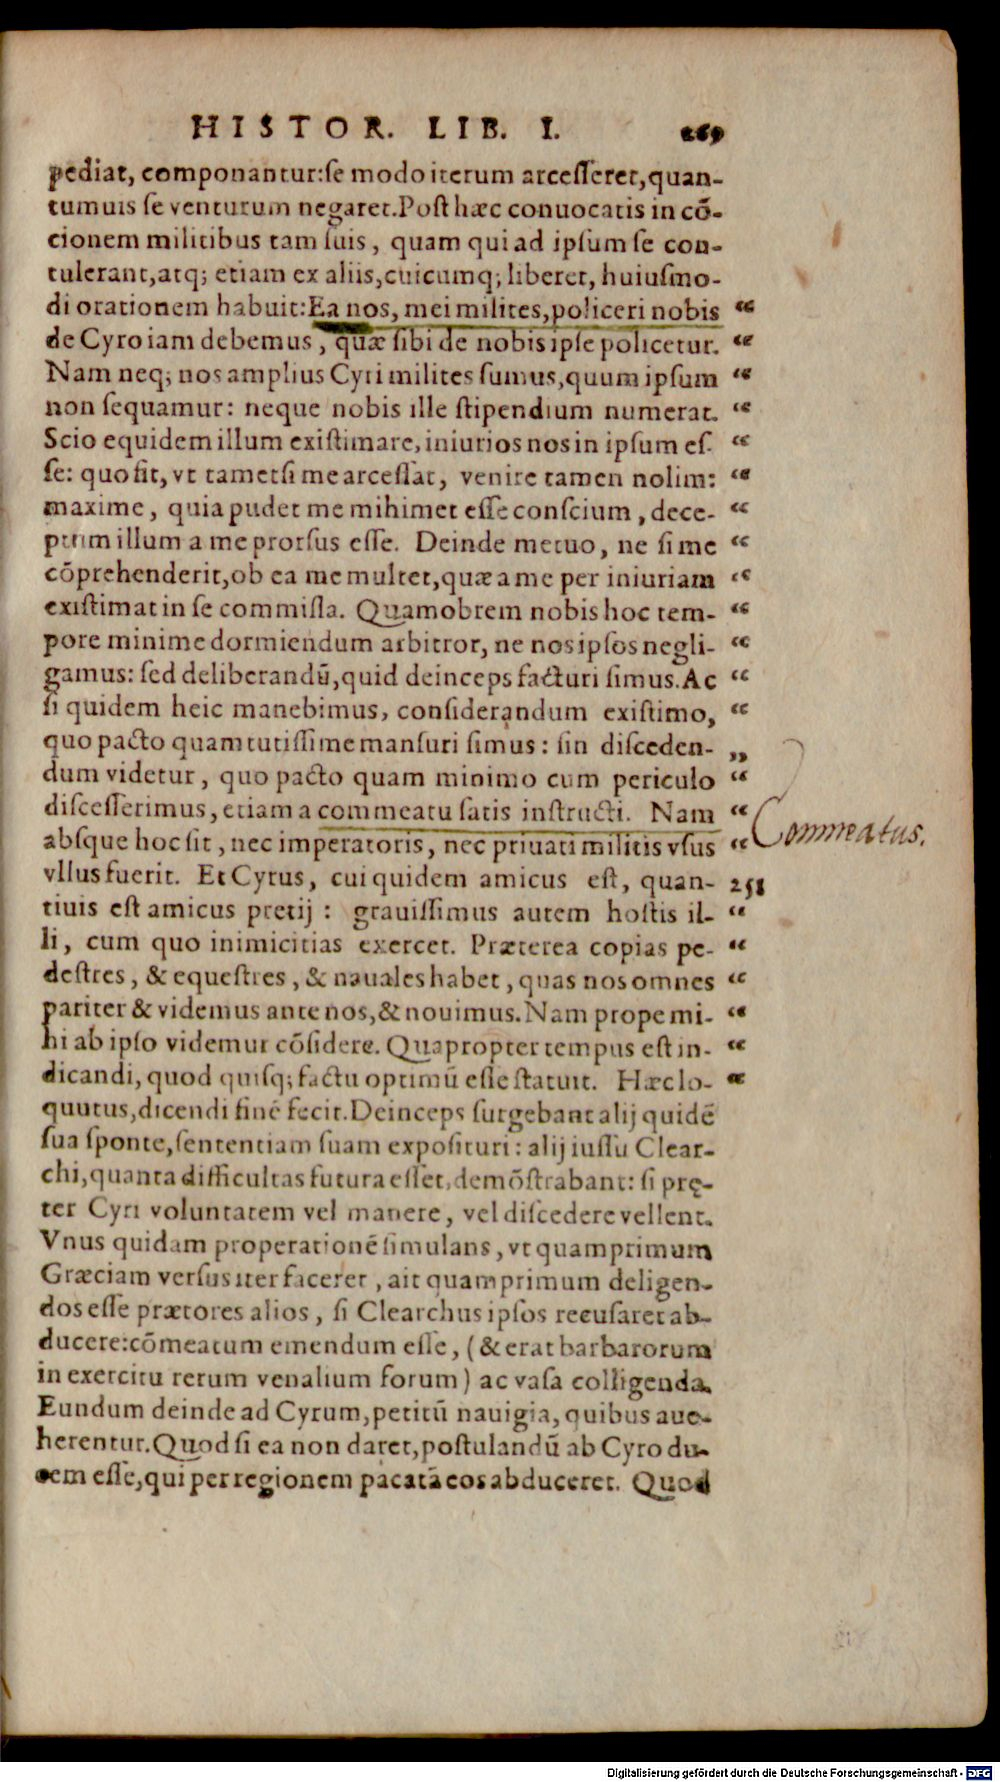 HISTOR. LIB. I. 269
pediat, componantur:se modo iterum arcesseret,quan-
tumuis se venturum negaret.Post hæc conuocatis in cō-
cionem militibus tam suis, quam qui ad ipsum se con-
tulerant,atq; etiam ex aliis,cuicumq; liberet, huiusmo-
di orationem habuit:Ea nos, mei milites,policeri nobis “
de Cyro iam debemus, quæ sibi de nobis ipse policetur. “
Nam neq; nos amplius Cyri milites sumus,quum ipsum “
non sequamur: neque nobis ille stipendium numerat. “
Scio equidem illum existimare,iniurios nos in ipsum es- “
se: quo fit, vt tametsi me arcessat, venire tamen nolim: “
maxime, quia pudet me mihimet esse conscium, dece- “
ptum illum a me prorsus esse. Deinde metuo, ne si me “
cōprehenderit,ob ea me multet,quæ a me per iniuriam “
existimat in se commissa. Quamobrem nobis hoc tem- “
pore minime dormiendum arbitror, ne nos ipsos negli- “
gamus: sed deliberandū,quid deinceps facturi simus.Ac “
si quidem heic manebimus, considerandum existimo, “
quo pacto quam tutissime mansuri simus: sin disceden- ,,
dum videtur, quo pacto quam minimo cum periculo “
discesserimus, etiam a commeatu satis instructi. Nam “
Commeatus.
absque hoc sit, nec imperatoris, nec priuati militis vsus “
vllus fuerit. Et Cyrus, cui quidem amicus est, quan- 258
tiuis est amicus pretij: grauissimus autem hostis il- “
li, cum quo inimicitias exercet. Præterea copias pe- “
destres, & equestres, & nauales habet, quas nos omnes “
pariter & videmus ante nos,& nouimus. Nam prope mi- “
hi ab ipso videmur cōsidere. Quapropter tempus est in- “
dicandi, quod quisq; factu optimū esse statuit. Hæc lo- “
quutus,dicendi finē fecit.Deinceps surgebant alij quidē
sua sponte,sententiam suam exposituri: alij iussu Clear-
chi,quanta difficultas futura esset,demōstrabant: si prę-
ter Cyri voluntatem vel manere, vel discedere vellent.
Vnus quidam properationē simulans, vt quamprimum
Græciam versus iter faceret, ait quamprimum deligen-
dos esse prætores alios, si Clearchus ipsos recusaret ab-
ducere:cōmeatum emendum esse, (& erat barbarorum
in exercitu rerum venalium forum) ac vasa colligenda.
Eundum deinde ad Cyrum,petitū nauigia,quibus aue-
herentur.Quod si ea non daret,postulandū ab Cyro du-
cem esse,qui per regionem pacatā eos abduceret. Quod
Digitalisierung gefördert durch die Deutsche Forschungsgemeinschaft - DFG